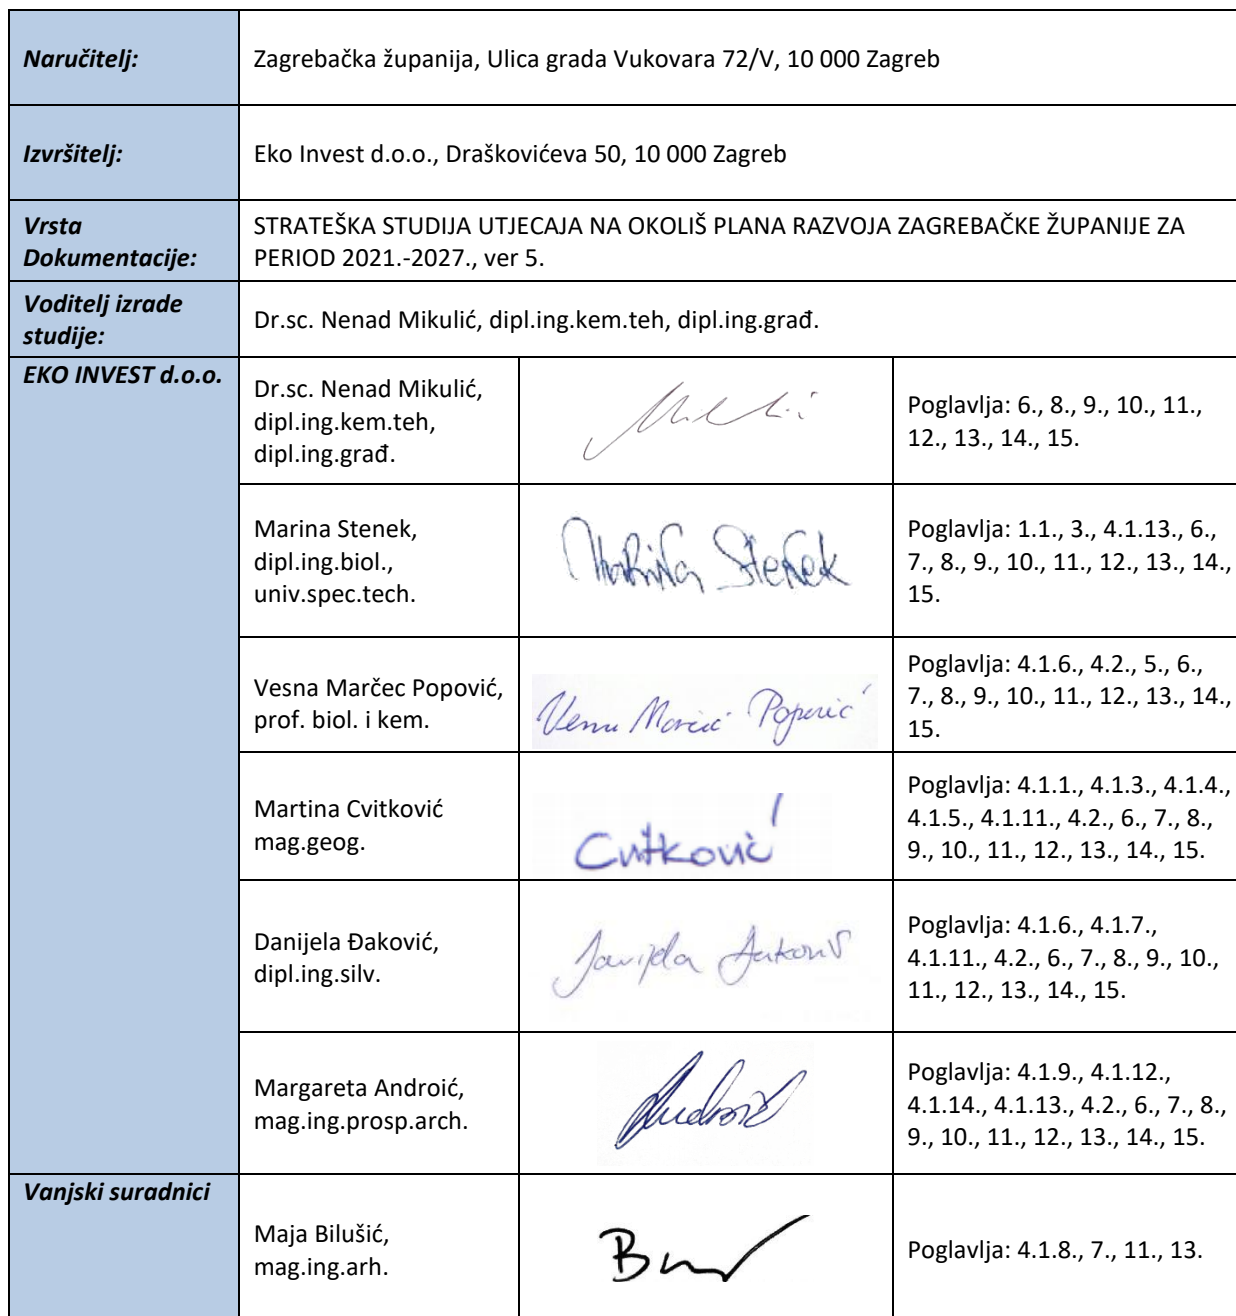 Naručitelj:
Zagrebačka županija, Ulica grada Vukovara 72/V, 10 000 Zagreb
Izvršitelj:
Eko Invest d.o.o., Draškovićeva 50, 10 000 Zagreb
Vrsta
Dokumentacije:
STRATEŠKA STUDIJA UTJECAJA NA OKOLIŠ PLANA RAZVOJA ZAGREBAČKE ŽUPANIJE ZA
PERIOD 2021.-2027., ver 5.
Voditelj izrade
studije:
Dr.sc. Nenad Mikulić, dipl.ing.kem.teh, dipl.ing.građ.
EKO INVEST d.o.o.
Dr.sc. Nenad Mikulić,
dipl.ing.kem.teh,
dipl.ing.građ.
Poglavlja: 6., 8., 9., 10., 11.,
12., 13., 14., 15.
Marina Stenek,
dipl.ing.biol.,
univ.spec.tech.
Marina Stenek
Poglavlja: 1.1., 3., 4.1.13., 6.,
7., 8., 9., 10., 11., 12., 13., 14.,
15.
Vesna Marčec Popović,
prof. biol. i kem.
Poglavlja: 4.1.6., 4.2., 5., 6.,
7., 8., 9., 10., 11., 12., 13., 14.,
15.
Martina Cvitković
mag.geog.
Cvitković
Poglavlja: 4.1.1., 4.1.3., 4.1.4.,
4.1.5., 4.1.11., 4.2., 6., 7., 8.,
9., 10., 11., 12., 13., 14., 15.
Danijela Đaković,
dipl.ing.silv.
Poglavlja: 4.1.6., 4.1.7.,
4.1.11., 4.2., 6., 7., 8., 9., 10.,
11., 12., 13., 14., 15.
Margareta Androić,
mag.ing.prosp.arch.
Poglavlja: 4.1.9., 4.1.12.,
4.1.14., 4.1.13., 4.2., 6., 7., 8.,
9., 10., 11., 12., 13., 14., 15.
Vanjski suradnici
Maja Bilušić,
mag.ing.arh.
Poglavlja: 4.1.8., 7., 11., 13.